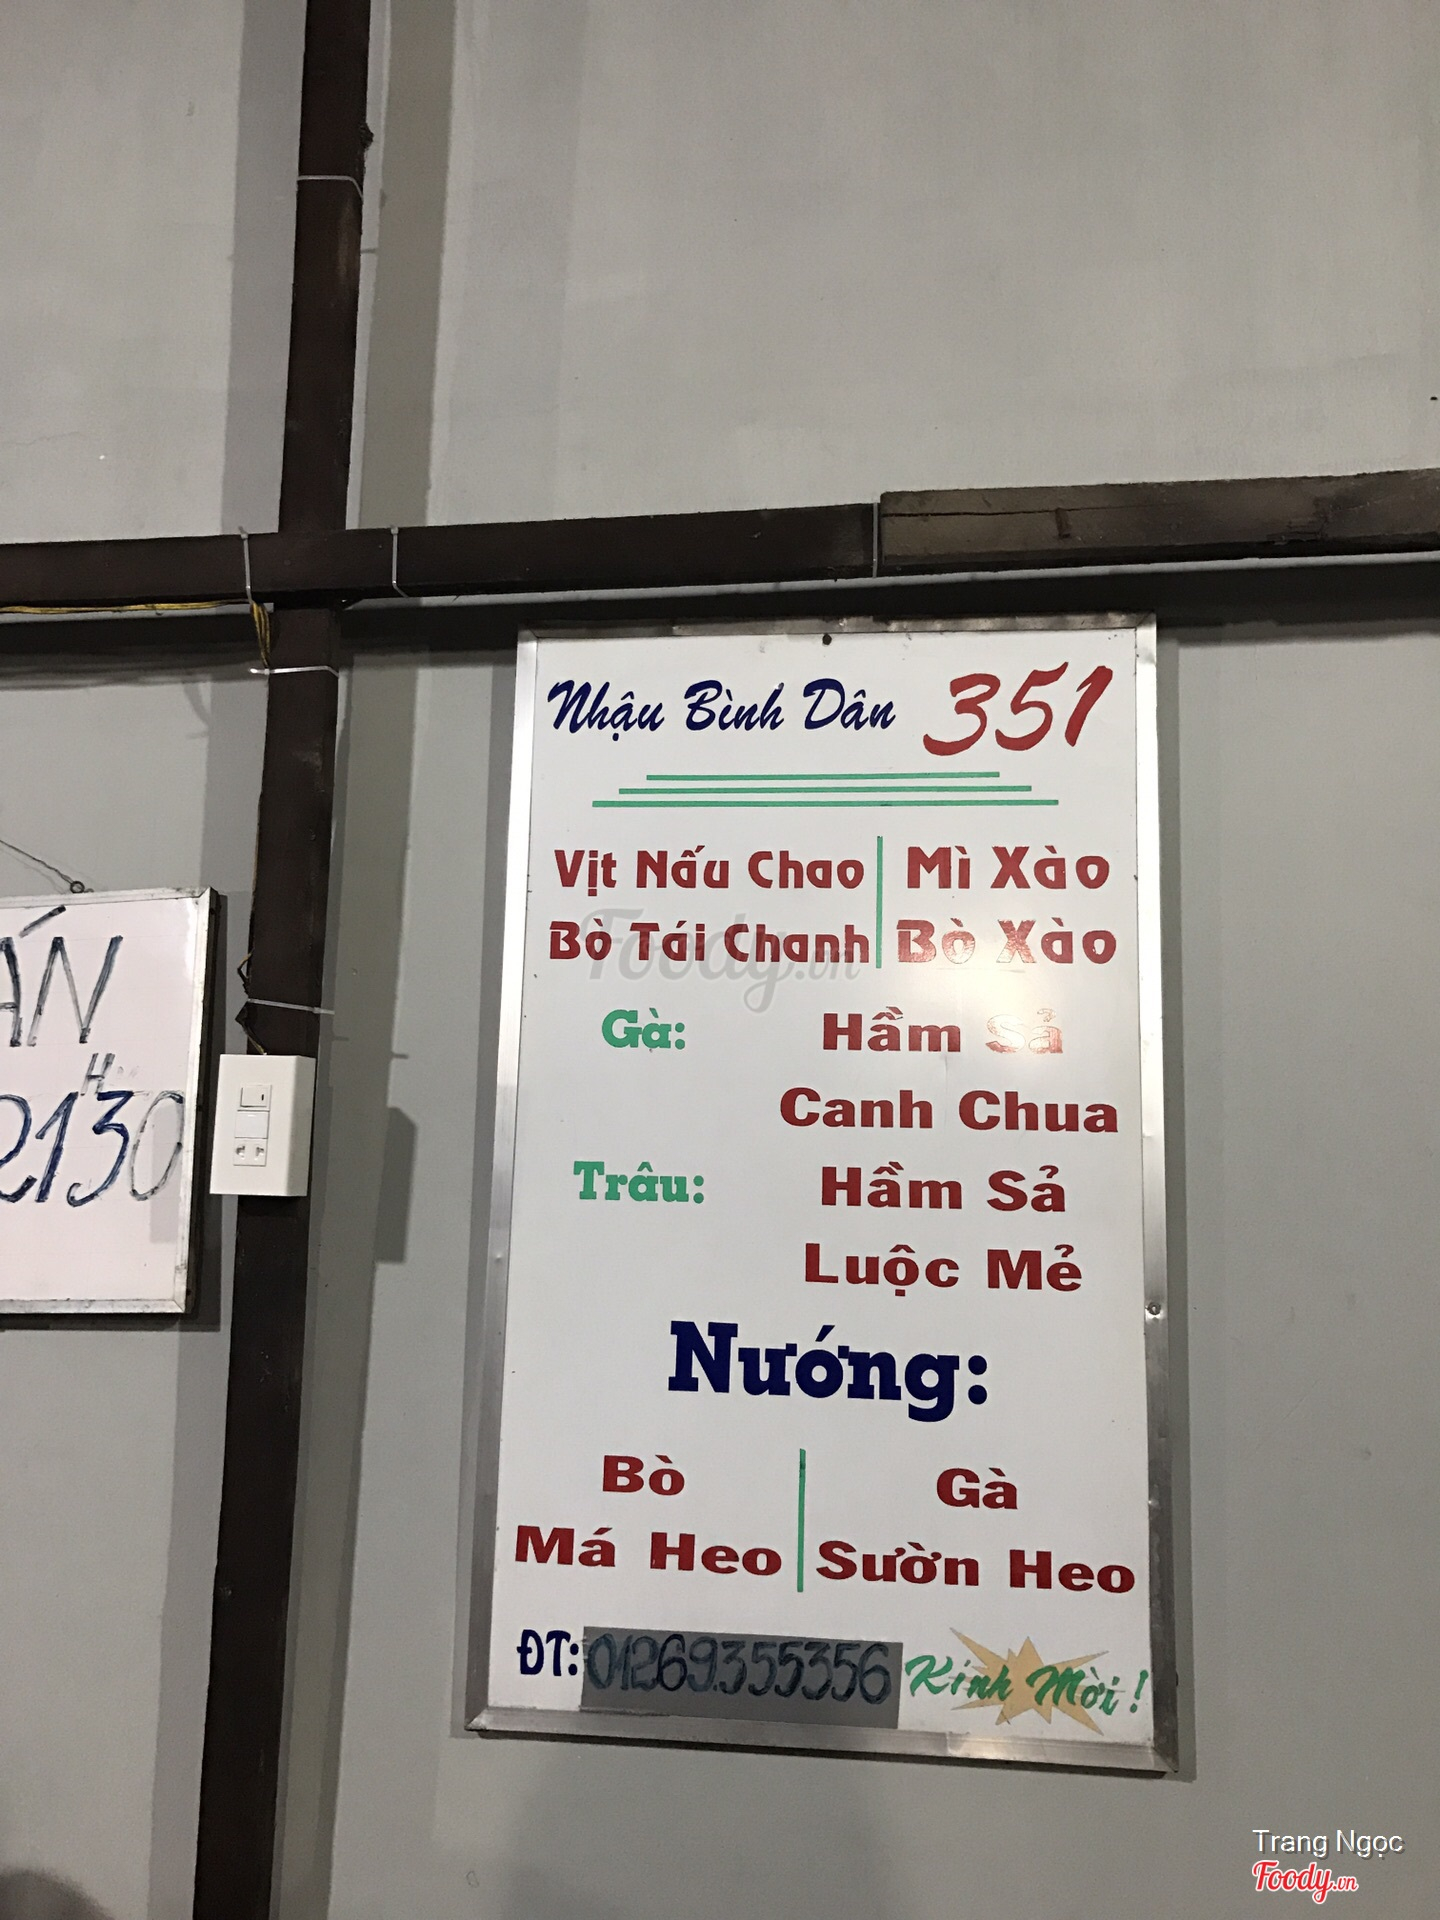 Nhậu Bình Dân 351
Vịt Nấu Chao | Mì Xào
Bò Tái Chanh | Bò Xào
Gà: Hầm Sả
Canh Chua
Trâu: Hầm Sả
Luộc Mẻ
Nướng:
Bò | Gà
Má Heo | Sườn Heo
ĐT: 01269.355356 Kính Mời!
ÁN
H
2130
Foody.vn
Trang Ngọc
Foody.vn